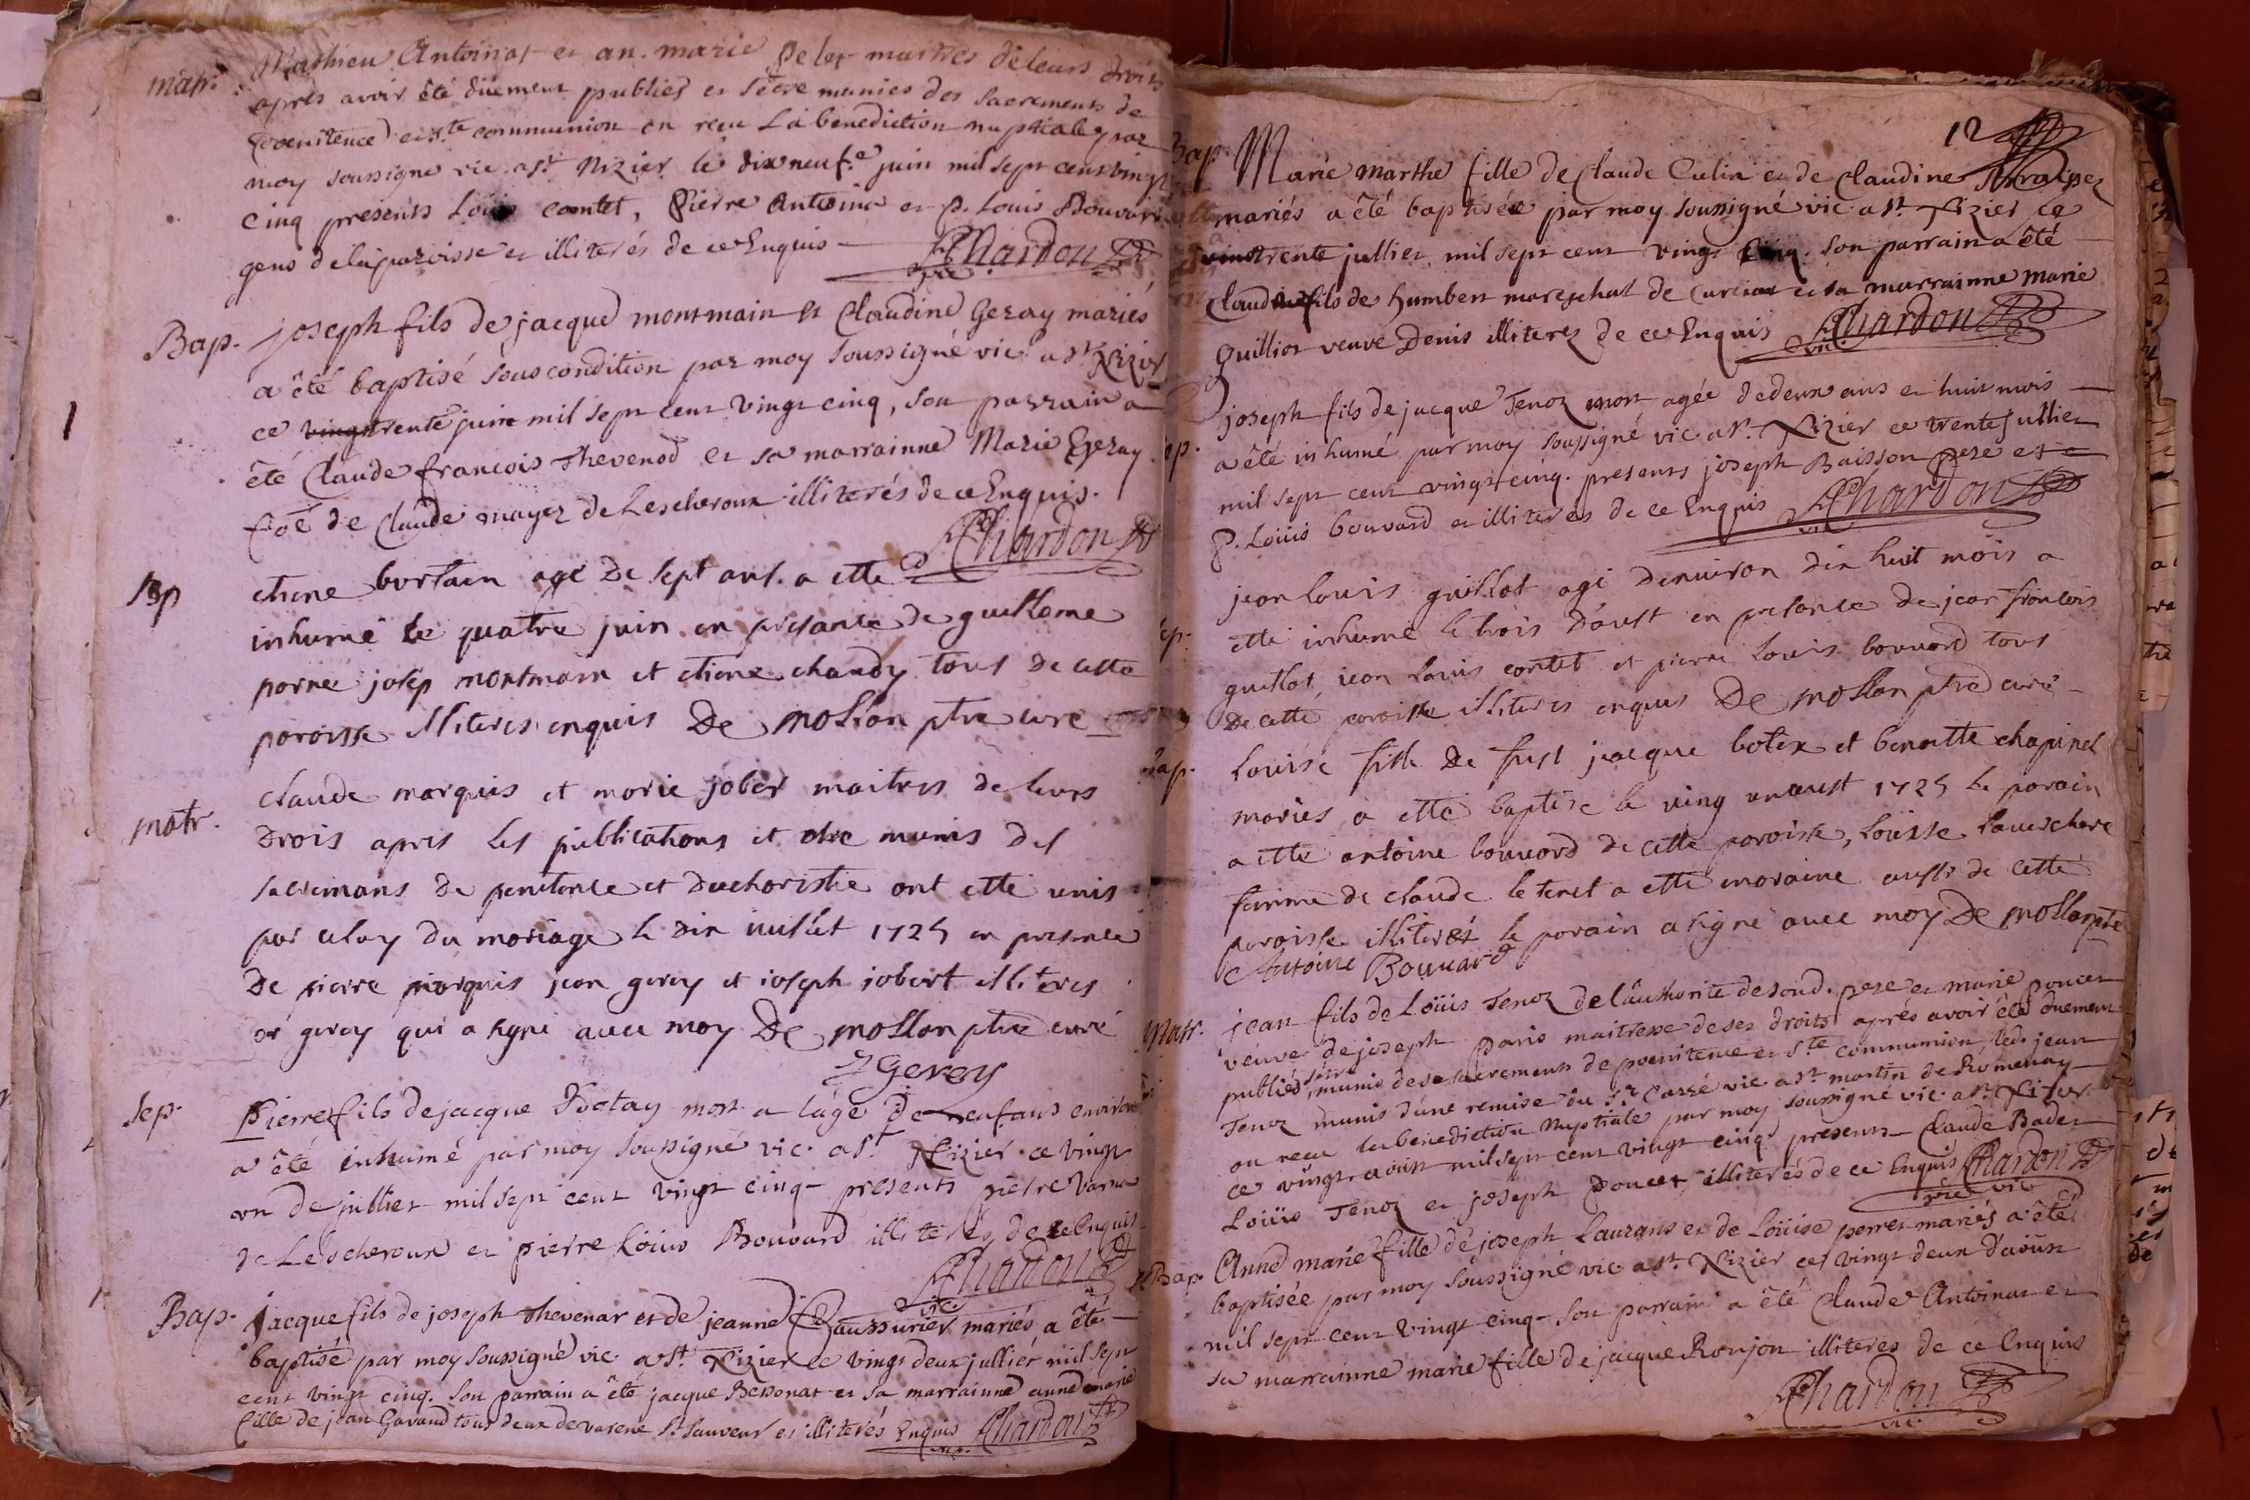 matr.
Mathieu Antoinat et an. marie Pelet maitres de leurs droits
apres avoir êté düement publiés et sêtre munies des sacrements de
poenitence et ste communion on recu La benediction nuptiale par
moy soussigne vic a st Nizier le dixneuf.e juin mil sept cent vingt
cinq presents Louis contet, Pierre Antoine et P. Louis Bouvard
gens de la paroisse et illiterés de ce Enquis
Chardon
vic
Bap.
joseph fils de jacque montmain et Claudine Geray mariés
a êté baptisé sous condition par moy soussigné vic a st Nizier
ce trente juin mil sept cent vingt cinq, son parrain a
êté Claude francois Thevenod et sa marrainne Marie Geray
fõe de Claude mayer de Lescheroux illiterés de ce Enquis.
Chardon
Sep
etiene burtain age De sept ans. a ette
inhumé le quatre juin en presance de guillome
porne josep montmain et etiene chaudy tous de cette
paroisse illiteres enquis De mollan ptre curé
matr.
claude marquis et marie jober maitres de leurs
Drois apres les publications et etre munis des
sacremans de penitence et deucharistie ont etté unis
par celuy du mariage le dix iuillet 1725 en presence
De pierre marquis jean gerey et ioseph jobert illiteres
or gerey qui a signé avec moy De mollan ptre curé
J Gerey
Sep.
Pierre fils de jacque mort a lâge De neuf ans environ
a êté inhumé par moy soussigné vic. a st Nizier ce vingt
un de jullier mil sept cent vingt cinq presents pierre
de Lescheroux et pierre Loüis Bouvard illiteres de ce Enquis
Chardon
vic.
Bap.
jacque fils de joseph Thevenar et de jeanne mariés a êté
baptisé par moy soussigné vic a st. Nizier ce vingt deux jullier mil sept
cent vingt cinq. son parrain a êté jacque Bessonat et sa marrainne anne marie
fille de jean Gavand tous deux de varene st Sauveur et illiterés Enquis Chardon
vic.
12
Bap.
Marie marthe fille de Claude Culin et de Claudine
mariés a êté baptisée par moy soussigné vic a st. Nizier ce
trente jullier mil sept cent vingt Cinq. son parrain a êté
Claude fils de humbert marechal de et sa marrainne marie
Guilliot veuve Denis illiterez de ce Enquis Chardon
vic.
joseph fils de jacque Tenoz mort agée de deux ans et huit mois
a êté inhumé par moy soussigné vic a st. Nizier ce trente jullier
mil sept cent vingt cinq. presents joseph Baisson pere et
P. Loüis bouvard et illiteres de ce Enquis Chardon
vic
jean louis guillot agé denviron dix huit mois a
etté inhumé le trois d'aust en presance de jean francois
guillot, jean louis contet et pierre louis bouvard tous
De cette paroisse illiteres enquis De mollan ptre curé
Bap.
Louise fille De jacque botex et benoitte chapinel
maries a etté baptise le ving un aust 1725 le parain
a etté antoine bouvard de cette paroisse, Louise
femme de claude le tenet a etté moraine aussi de cette
paroisse illiterés le parain a signé avec moy De mollan ptre
Antoine Bouvard
Matr.
jean fils de Loüis Tenoz de l'authorite de son d. pere et marie poncet
veuve de joseph Paris maitresse de ses droits après avoir êté düement
publiés, munis des sacrements de poenitence et ste communion, led. jean
Tenoz munis d'une remise du sr Carré vic a st. martin de Romenay
on recu la benediction Nuptiale par moy soussigné vic a st. Nizier
ce vingt aoüst mil sept cent vingt cinq presents Claude Badet
Loüis Tenoz et joseph poncet illiterés de ce Enquis Chardon
vic
Bap.
Anne marie fille de joseph Laurans et de Loüise perret mariés a êté
baptisée par moy soussigné vic a st. Nizier ce vingt deux d'aoüst
mil sept cent vingt cinq son parrain a êté Claude Antoinat et
sa marrainne marie fille de jacque Ronjon illiteres de ce Enquis
Chardon
vic